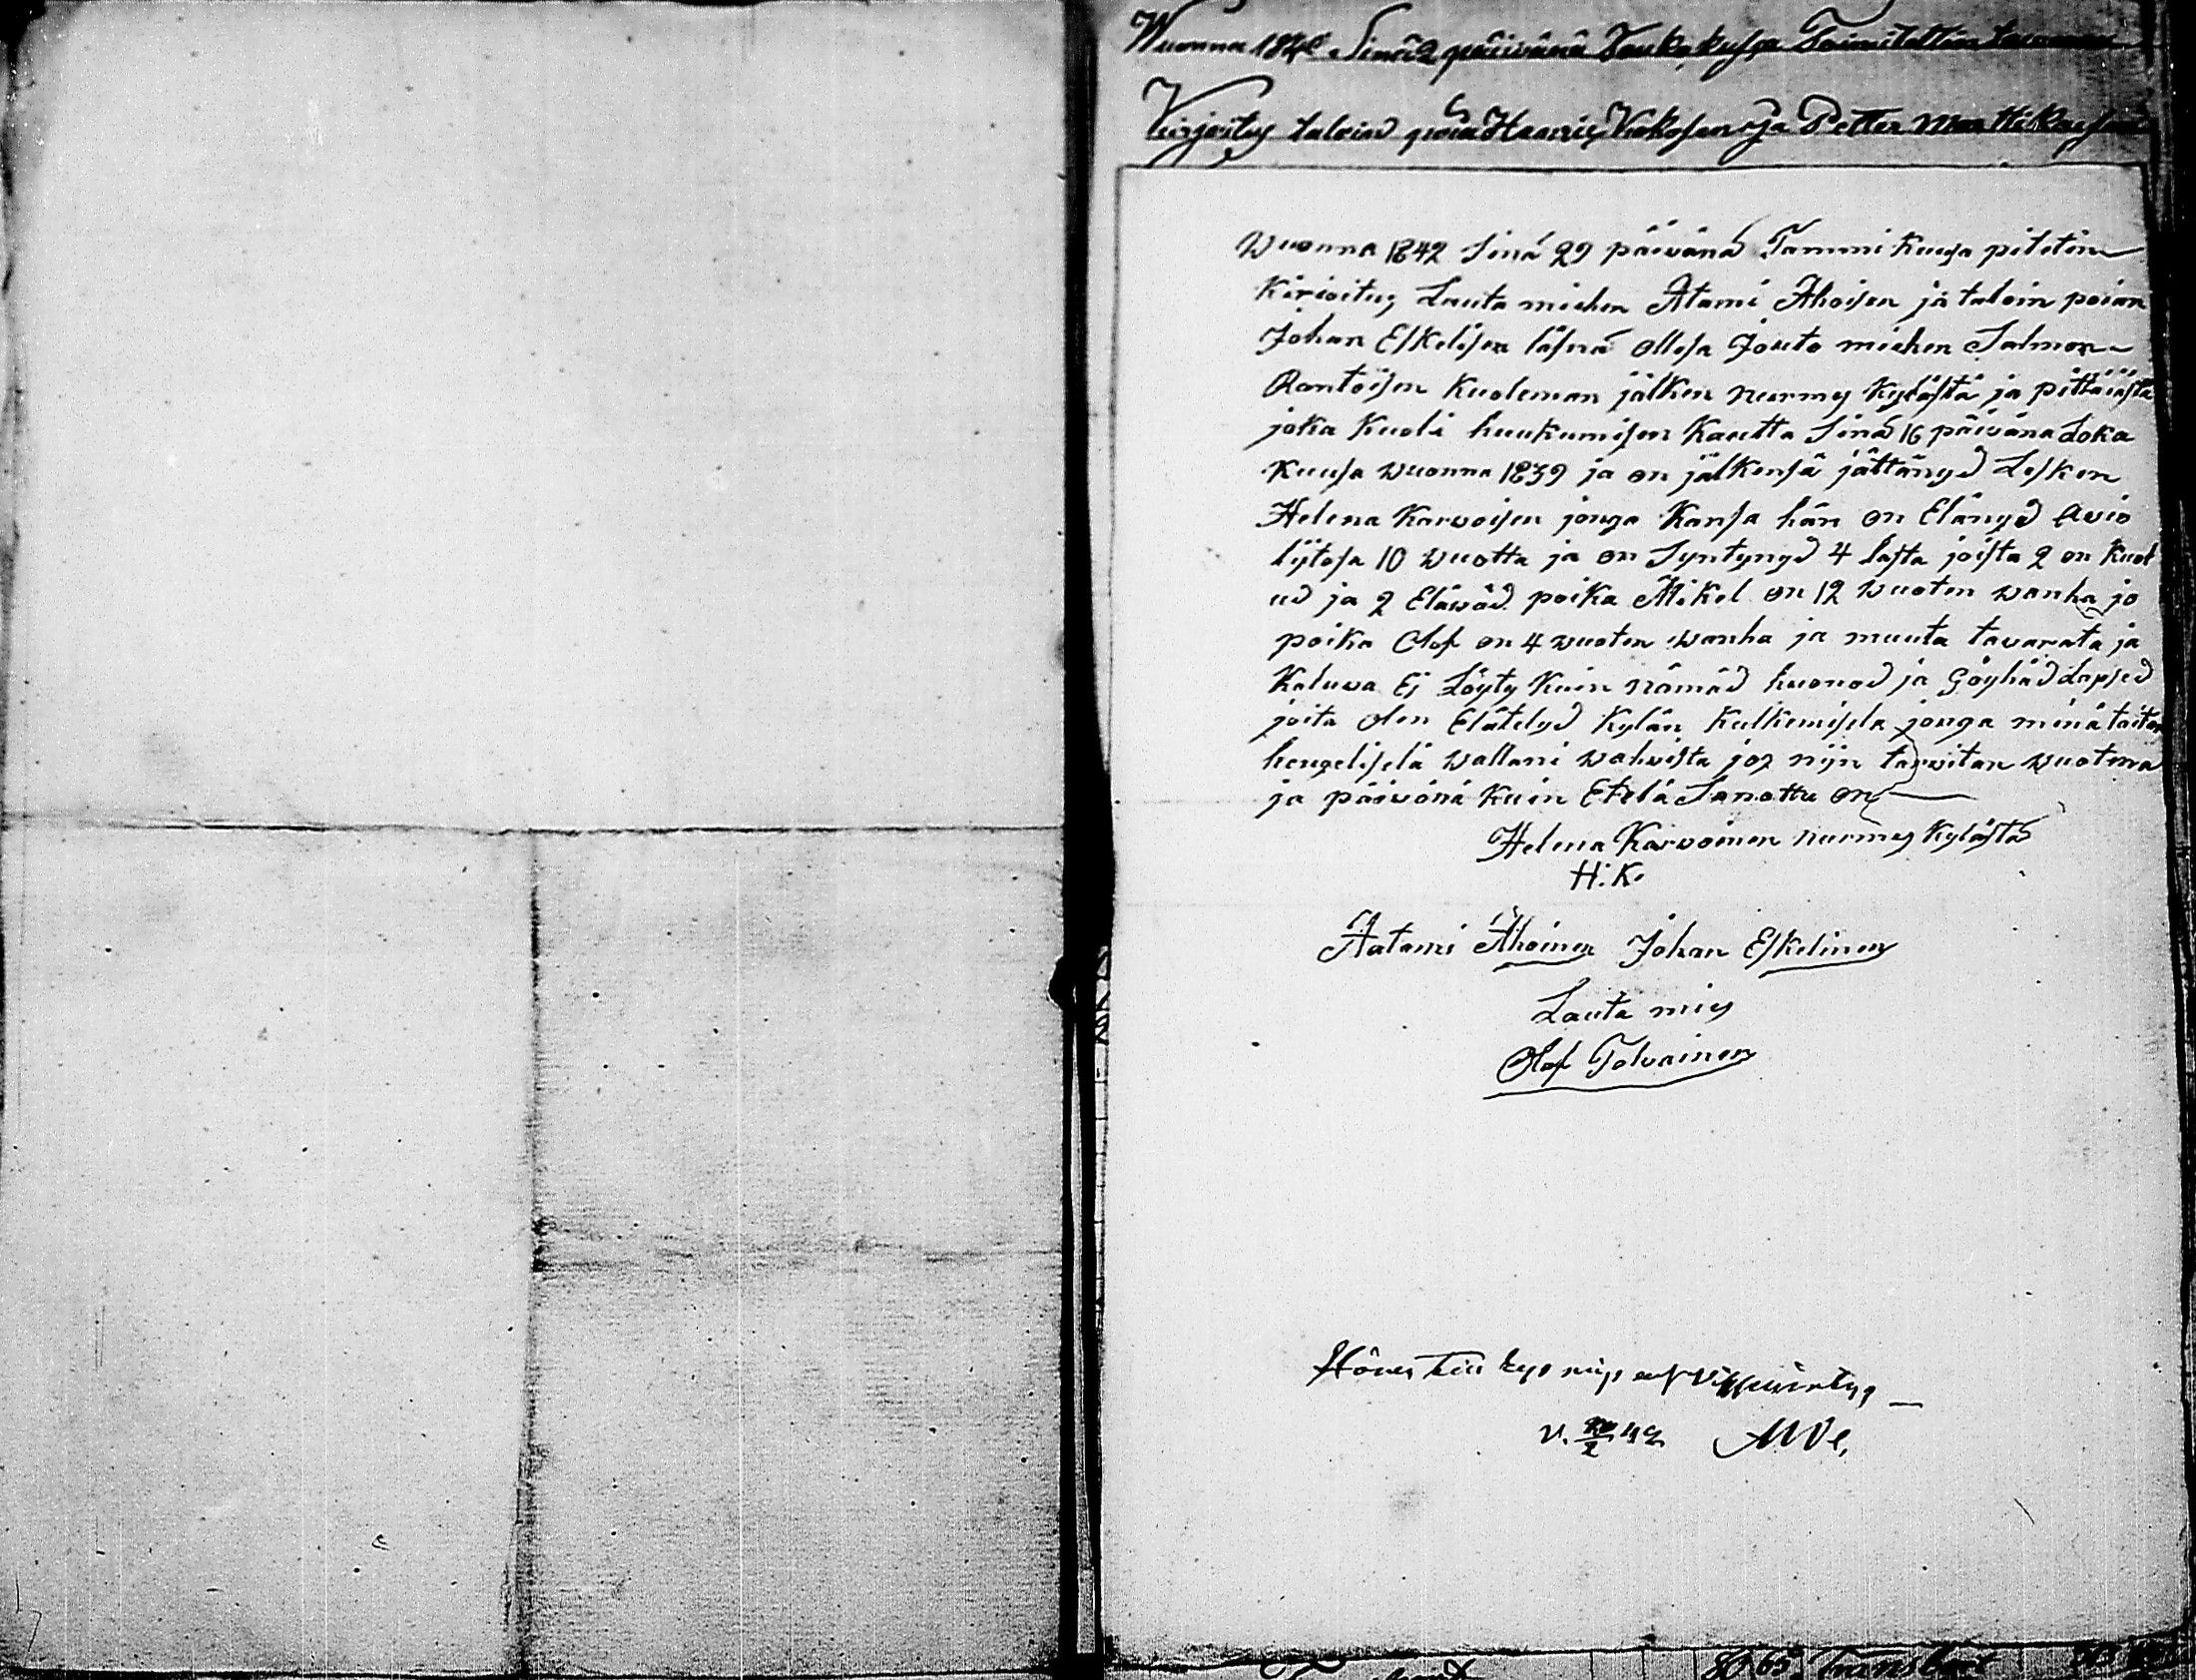 Wuonna 184 Sinä 2 päivänä Toukokuusa Toimitettin
Kirjoitus taloin poia Henric Kokosen ja Petter Martikaisen
Wuonna 1842 Sinä 29 päivänä Tammi kuusa pitetin
Kirioitus Lauta miehen Atami Ahoisen ja taloin poian
Johan Eskelisen läsnä ollesa Jouto miehen Salmon
Rantoisen Kuoleman jälken nurmes Kylästä ja pittäiästä
joka Kuoli huukumisen Kautta Sinä 16 päivänä Loka
Kuusa wuonna 1839 ja on jälkensä jättänyd Lesken
Helena Karvoisen jonga Kansa hän on Elänyd Avio
lijtosa 10 wuotta ja on Syntynyd 4 lasta joista 2 on Kuol
ud ja 2 Eläwäd poika Mikel on 12 wuoten wanha ja
poika Olof on 4 wuoten wanha ja muuta tavarata ja
Kaluva Ej Löyty Kuin nämäd huonod ja Göyhäd Lapsed
joita olen Elätelyd Kylän Kulkemisela jonga minä taitan
hengelisela wallani wahvista jos nijn tarvitan wuotena
ja päivänä Kuin Etelä Sanottu on
Helena Karvoinen nurmes Kylästä
H. K.
Aatami Ahoinen Johan Eskelinen
Lauta mies
Olof Tolvainen
v. 42
80 65 Transport